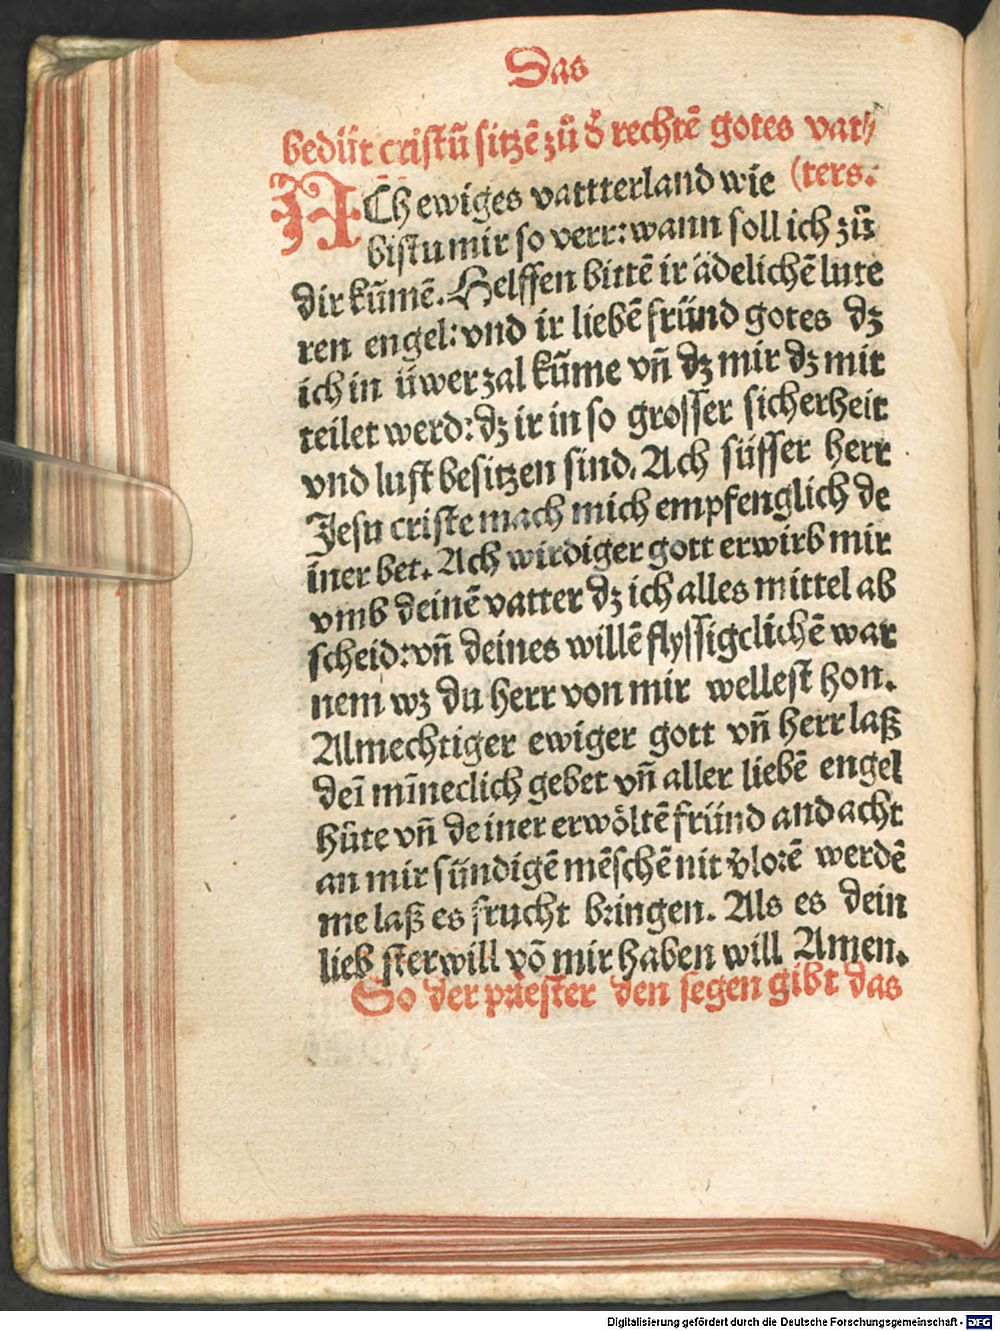 Das
bedüt cristū sitzē zů d̉ rechtē gotes vat⸗
(ters.
ACh ewiges vattterland wie
bistu mir so verr: wann soll ich zů
dir kūmē. Helffen bittē ir ädelichē lute
ren engel: vnd ir liebē fründ gotes dz
ich in üwer zal kūme vn̄ dz mir dz mit
teilet werd: dz ir in so grosser sicherheit
vnd lust besitzen sind. Ach süsser herr
Jesu criste mach mich empfenglich de
iner bet. Ach wirdiger gott erwirb mir
vmb deinē vatter dz ich alles mittel ab
scheid: vn̄ deines willē flyssigclichē war
nem wz du herr von mir wellest hon.
Almechtiger ewiger gott vn̄ herr laß
deī mīneclich gebet vn̄ aller liebē engel
hůte vn̄ deiner erwöltē fründ andacht
an mir sündigē mēschē nit v̉lorē werdē
me laß es frucht bringen. Als es dein
liebster will vō mir haben will Amen.
So der priester den segen gibt das
Digitalisierung gefördert durch die Deutsche Forschungsgemeinschaft - DFG